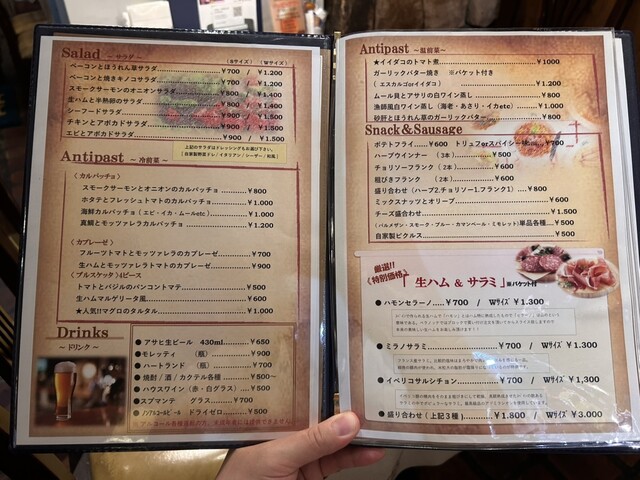 Salad ～サラダ～ (Sサイズ) (Wサイズ)
ベーコンとほうれん草サラダ ¥700 / ¥1.200
ベーコンと焼きキノコサラダ ¥700 / ¥1.200
スモークサーモンのオニオンサラダ ¥800 / ¥1.400
生ハムと半熟卵のサラダ ¥800 / ¥1.400
シーフードサラダ ¥900 / ¥1.500
チキンとアボカドサラダ ¥900 / ¥1.500
エビとアボカドサラダ ¥900 / ¥1.500
上記のサラダはドレッシングもお選び下さい。
(自家製野菜ドレ / イタリアン / シーザー / 和風)
Antipast ～冷前菜～
〈カルパッチョ〉
スモークサーモンとオニオンのカルパッチョ ¥800
ホタテとフレッシュトマトのカルパッチョ ¥1.000
海鮮カルパッチョ (エビ・イカ・ムールetc) ¥1.000
真鯛とモッツァレラカルパッチョ ¥1.000
〈カプレーゼ〉
フルーツトマトとモッツァレラのカプレーゼ ¥700
生ハムとモッツァレラトマトのカプレーゼ ¥900
〈ブルスケッタ〉4ピース
トマトとバジルのパンコントマテ ¥500
生ハムマルゲリータ風 ¥600
★人気!!マグロのタルタル ¥1.000
Drinks
～ドリンク～
● アサヒ生ビール 430ml ¥650
● モレッティ (瓶) ¥900
● ハートランド (瓶) ¥700
● 焼酎 / 酒 / カクテル各種 ¥500～
● ハウスワイン (赤・白グラス) ¥500
● スプマンテ グラス ¥700
● ノンアルコールビール ドライゼロ ¥500
Antipast ～温前菜～
★イイダコのトマト煮 ¥1000
ガーリックバター焼き ※バケット付き
(エスカルゴorイイダコ) ¥1.200
ムール貝とアサリの白ワイン蒸し ¥800
漁師風白ワイン蒸し (海老・あさり・イカetc) ¥1.000
砂肝とほうれん草のガーリックバター ¥800
Snack&Sausage
ポテトフライ ¥600 トリュフorスパイシー味 ¥700
ハーブウインナー (3本) ¥500
チョリソーフランク (2本) ¥600
粗びきフランク (2本) ¥600
盛り合わせ (ハーブ2.チョリソー1.フランク1) ¥800
ミックスナッツとオリーブ ¥600
チーズ盛合わせ ¥1.500
(パルメザン・スモーク・ブルー・カマンベール・ミモレット) 単品各種 ¥500
自家製ピクルス ¥500
厳選!!
特別価格
「生ハム & サラミ」※バケット付
● ハモンセラーノ ¥700 / Wサイズ ¥1.300
● ミラノサラミ ¥700 / Wサイズ ¥1,300
● イベリコサルシチョン ¥700 / Wサイズ ¥1,300
● 盛り合わせ (上記3種) ¥1.800 / Wサイズ ¥3.000